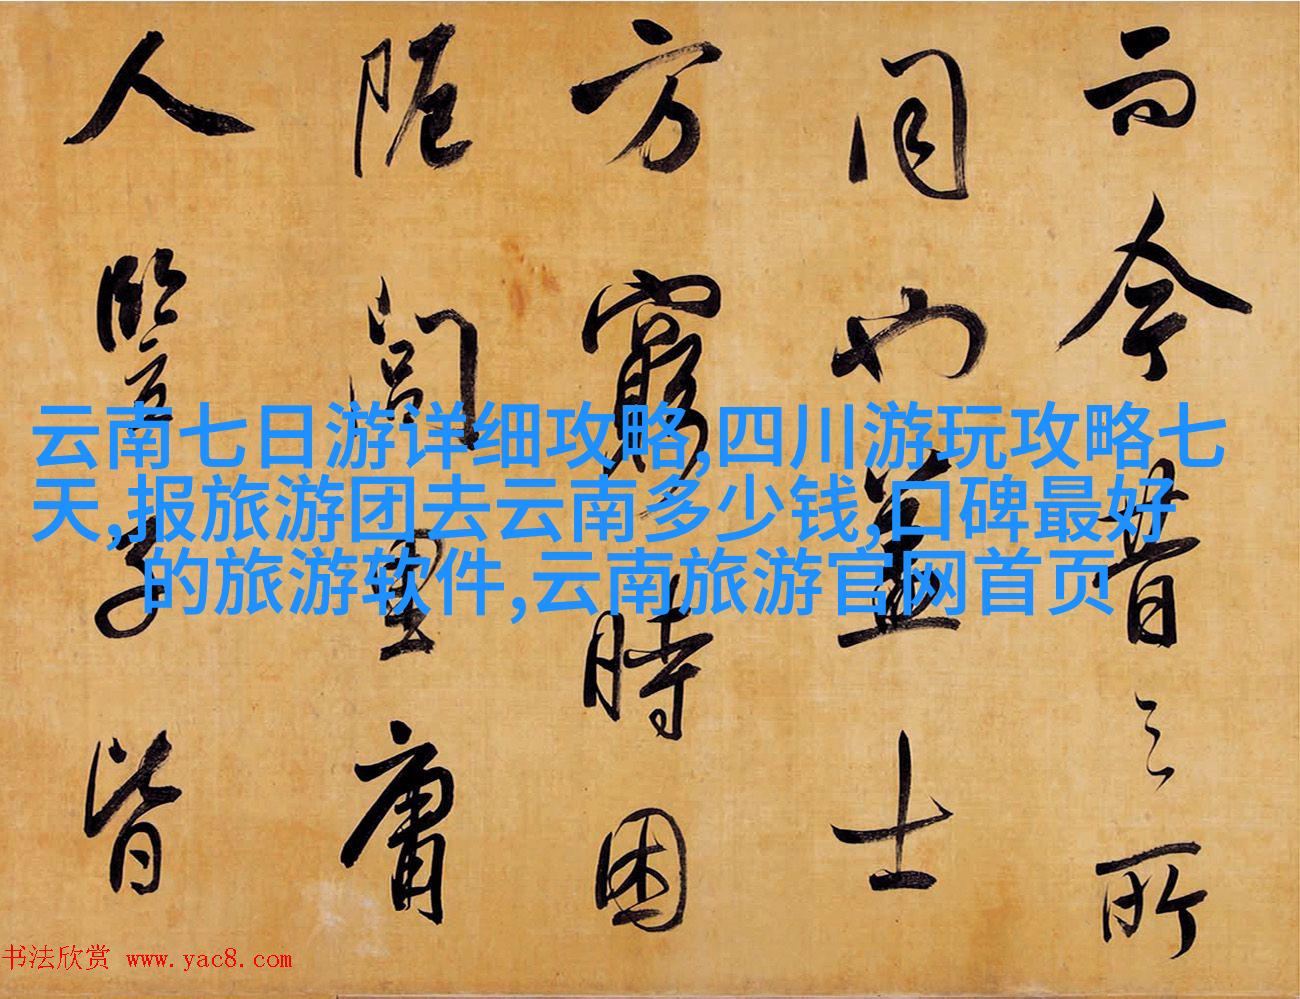 而今昔之所
同也盖士
方窮時困
阨閭里庸
人竪子皆
云南七日游详细攻略,四川游玩攻略七
天,报旅游团去云南多少钱,口碑最好
的旅游软件,云南旅游官网首页
书法欣赏 www.yac8.com